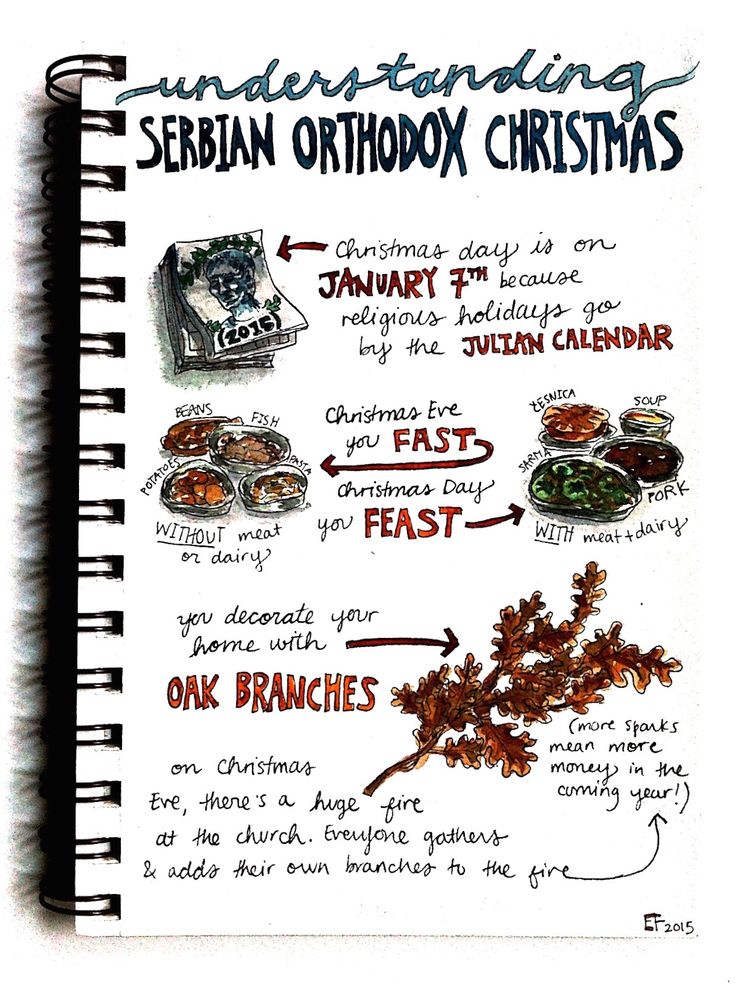 understanding
SERBIAN ORTHODOX CHRISTMAS
(2015)
Christmas day is on
JANUARY 7TH because
religious holidays go
by the JULIAN CALENDAR
BEANS
FISH
POTATOES
PASTA
WITHOUT meat
or dairy
Christmas Eve
you FAST
Christmas Day
you FEAST
ŽESNICA
SOUP
SARMA
PORK
WITH meat + dairy
you decorate your
home with
OAK BRANCHES
on Christmas
Eve, there's a huge fire
at the church. Everyone gathers
& adds their own branches to the fire
(more sparks
mean more
money in the
coming year!)
EF 2015